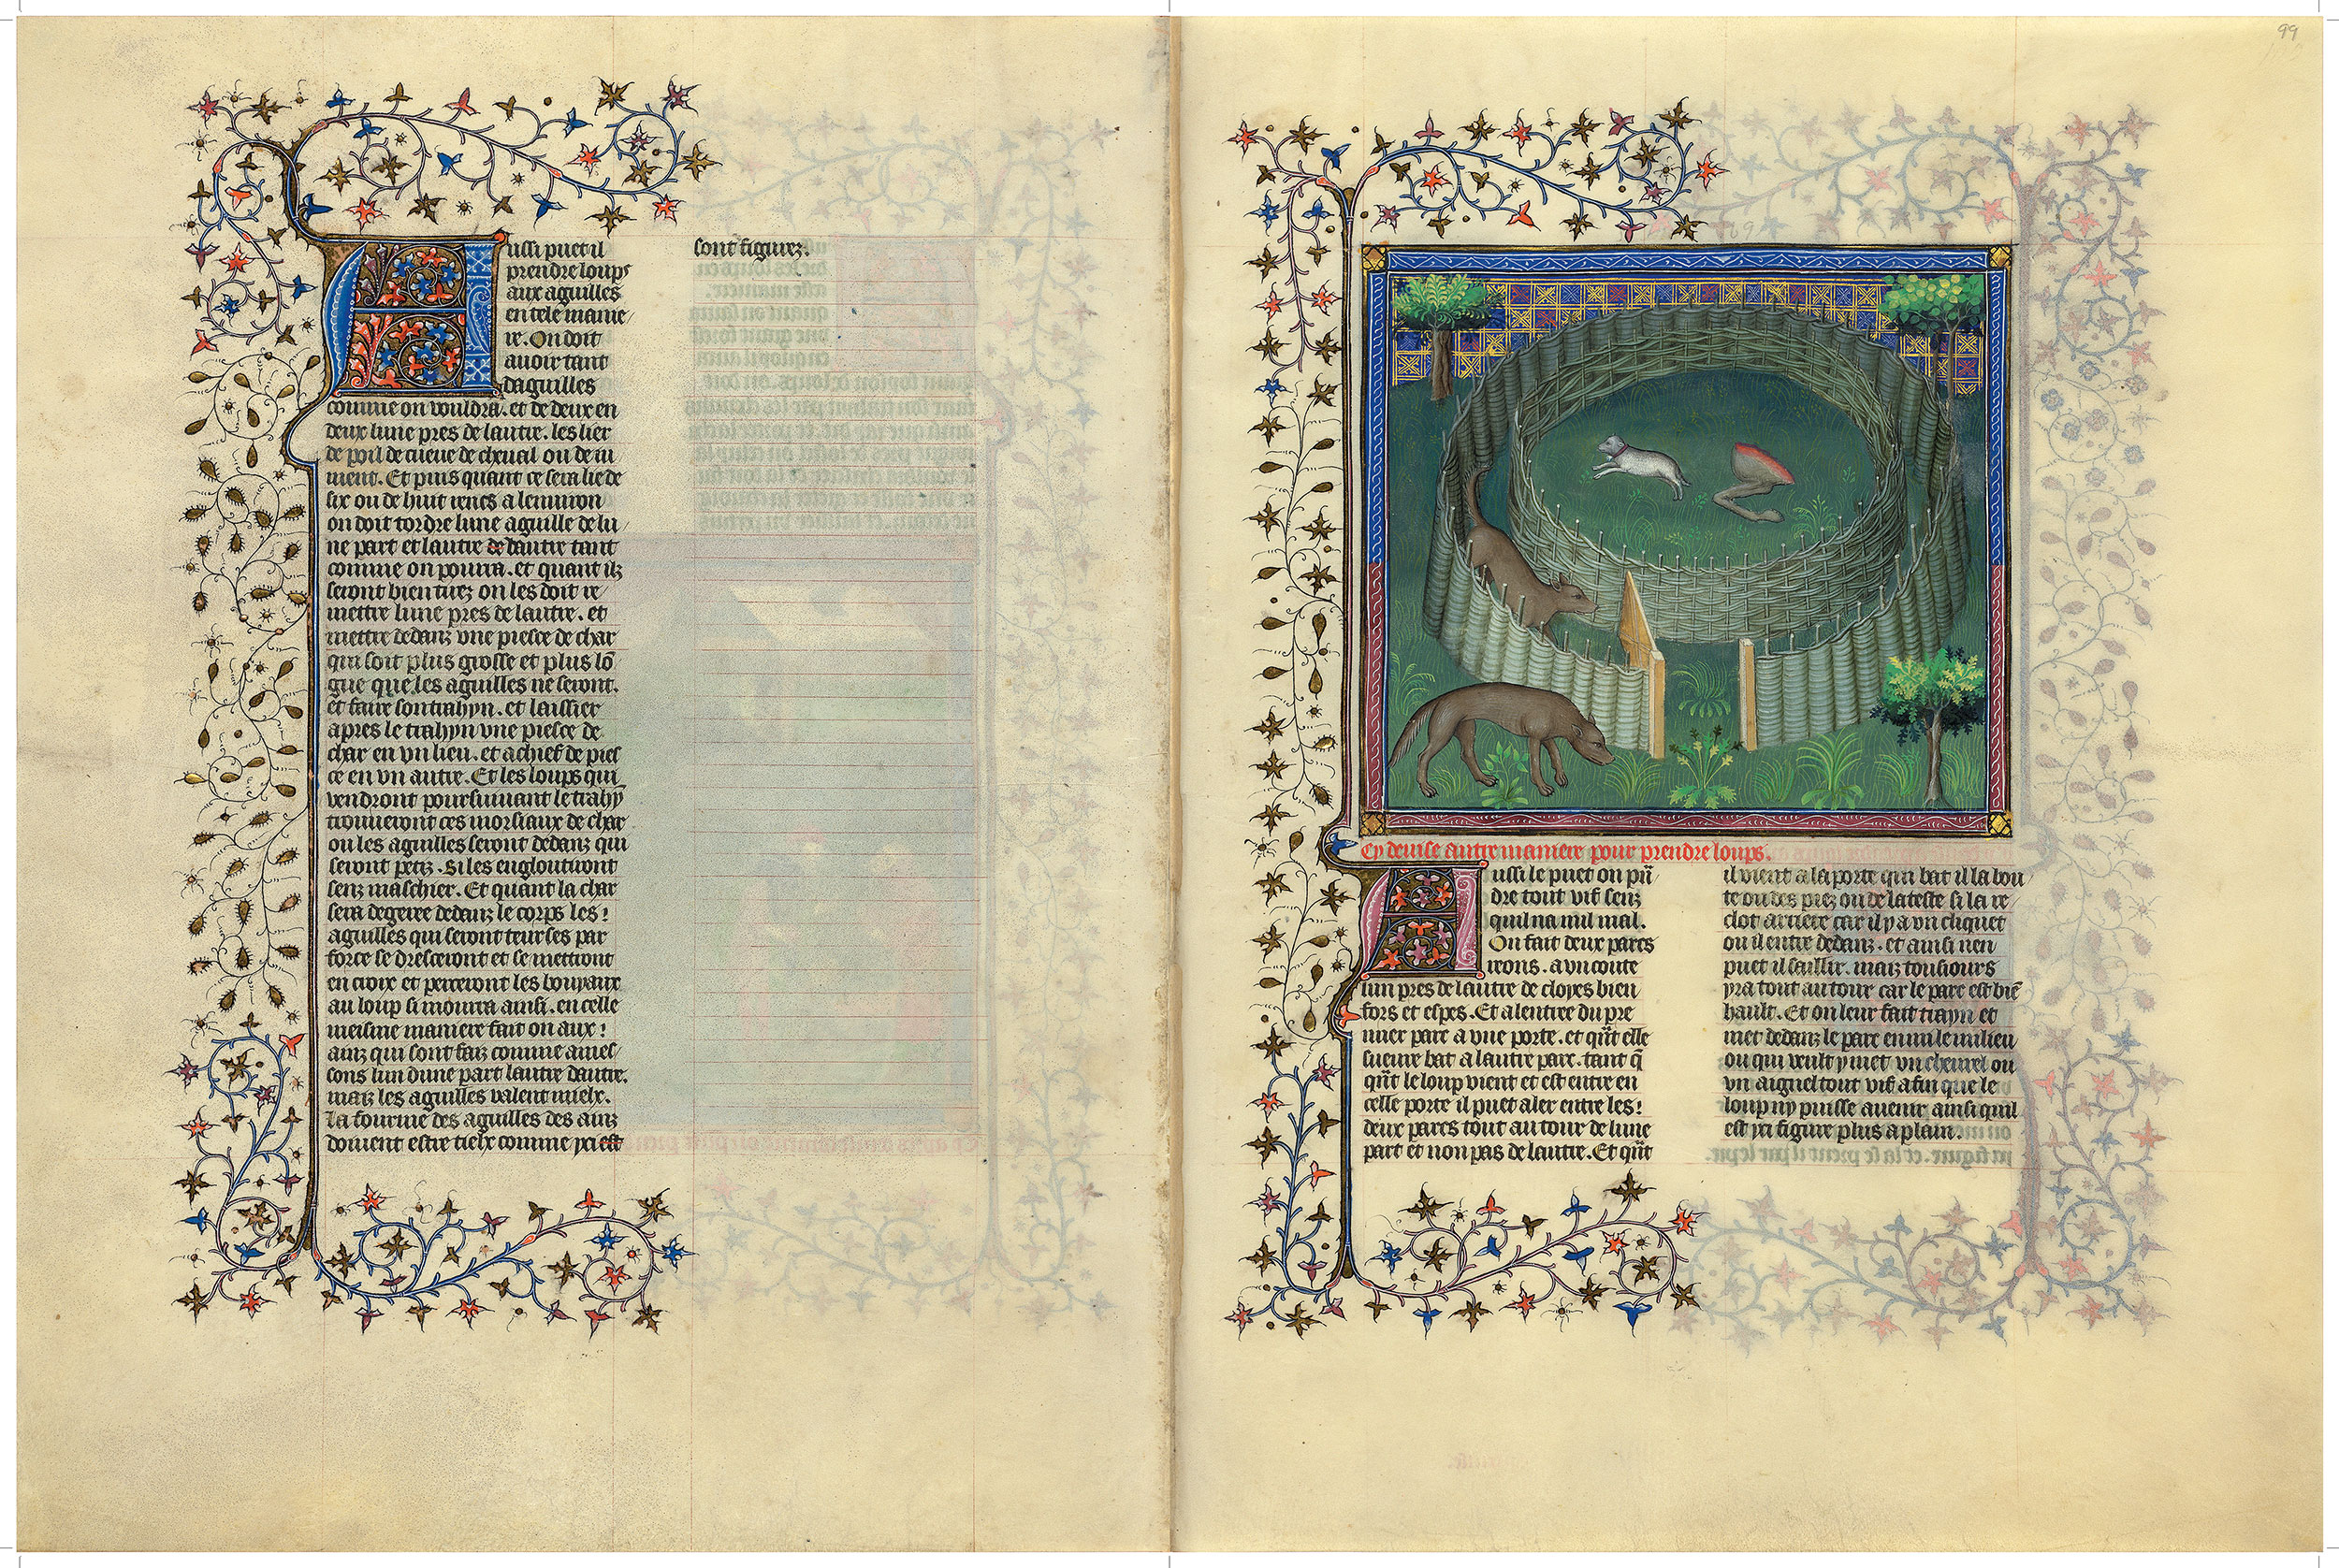 Aussi puet il
prendre loups
aux aguilles
en tele manie
re. On doit
auoir tant
daguilles
comme on vouldra. et de deux en
deux lune pres de lautre. les lier
de poil de cueue de cheual ou de iu
ment. Et puis quant ce sera lie de
six ou de huit renes a lenuiron
on doit tordre lune aguille de lu
ne part et lautre de dautre tant
comme on pourra. et quant ilz
seront bien tirez on les doit re
mettre lune pres de lautre. et
mettre dedanz vne piesce de char
qui soit plus grosse et plus lō
gue que les aguilles ne seront.
et faire son trahyn. et laissier
apres le trahyn vne piesce de
char en vn lieu. et a chief de pies
ce en vn autre. Et les loups qui
vendront poursuiuant le trahyn
trouueront ces morsiaux de char
ou les aguilles seront dedanz qui
seront petiz. Si les engloutiront
senz maschier. Et quant la char
sera degeree dedanz le corps les
aguilles qui seront teurses par
force se dresceront et se mettront
en croix et perceront les bouyaux
au loup si mourra ainsi. en celle
meisme maniere fait on aux
ainz qui sont faiz comme ames
sons lun dune part lautre dautre.
maiz les aguilles valent mielx.
la fourme des aguilles des ainz
doiuent estre tielx comme yci est
sont figurez.
99
Cy deuise autre maniere pour prendre loups.
Aussi le puet on pñ
dre tout vif senz
quil na mil mal.
On fait deux parcs
irons. a vn coute
lun pres de lautre de cloyes bien
fors et espes. Et a lentree du pre
mier parc a vne porte. et qñt elle
sueure bat a lautre parc. tant q̄
qñt le loup vient et est entre en
celle porte il puet aler entre les
deux parcs tout au tour de lune
part et non pas de lautre. Et qñt
il vient a la porte qui bat il la bou
te ou des piez ou de la teste si la re
clot arriere car il y a vn cliquet
ou il entre dedanz. et ainsi nen
puet il saillir. maiz tousiours
yra tout au tour car le parc est biē
hault. Et on leur fait trayn et
met dedanz le parc enmi le milieu
ou qui veult y met vn cheurel ou
vn aignel tout vif afin que le
loup ny puisse auenir ainsi quil
est yci figure plus a plain.